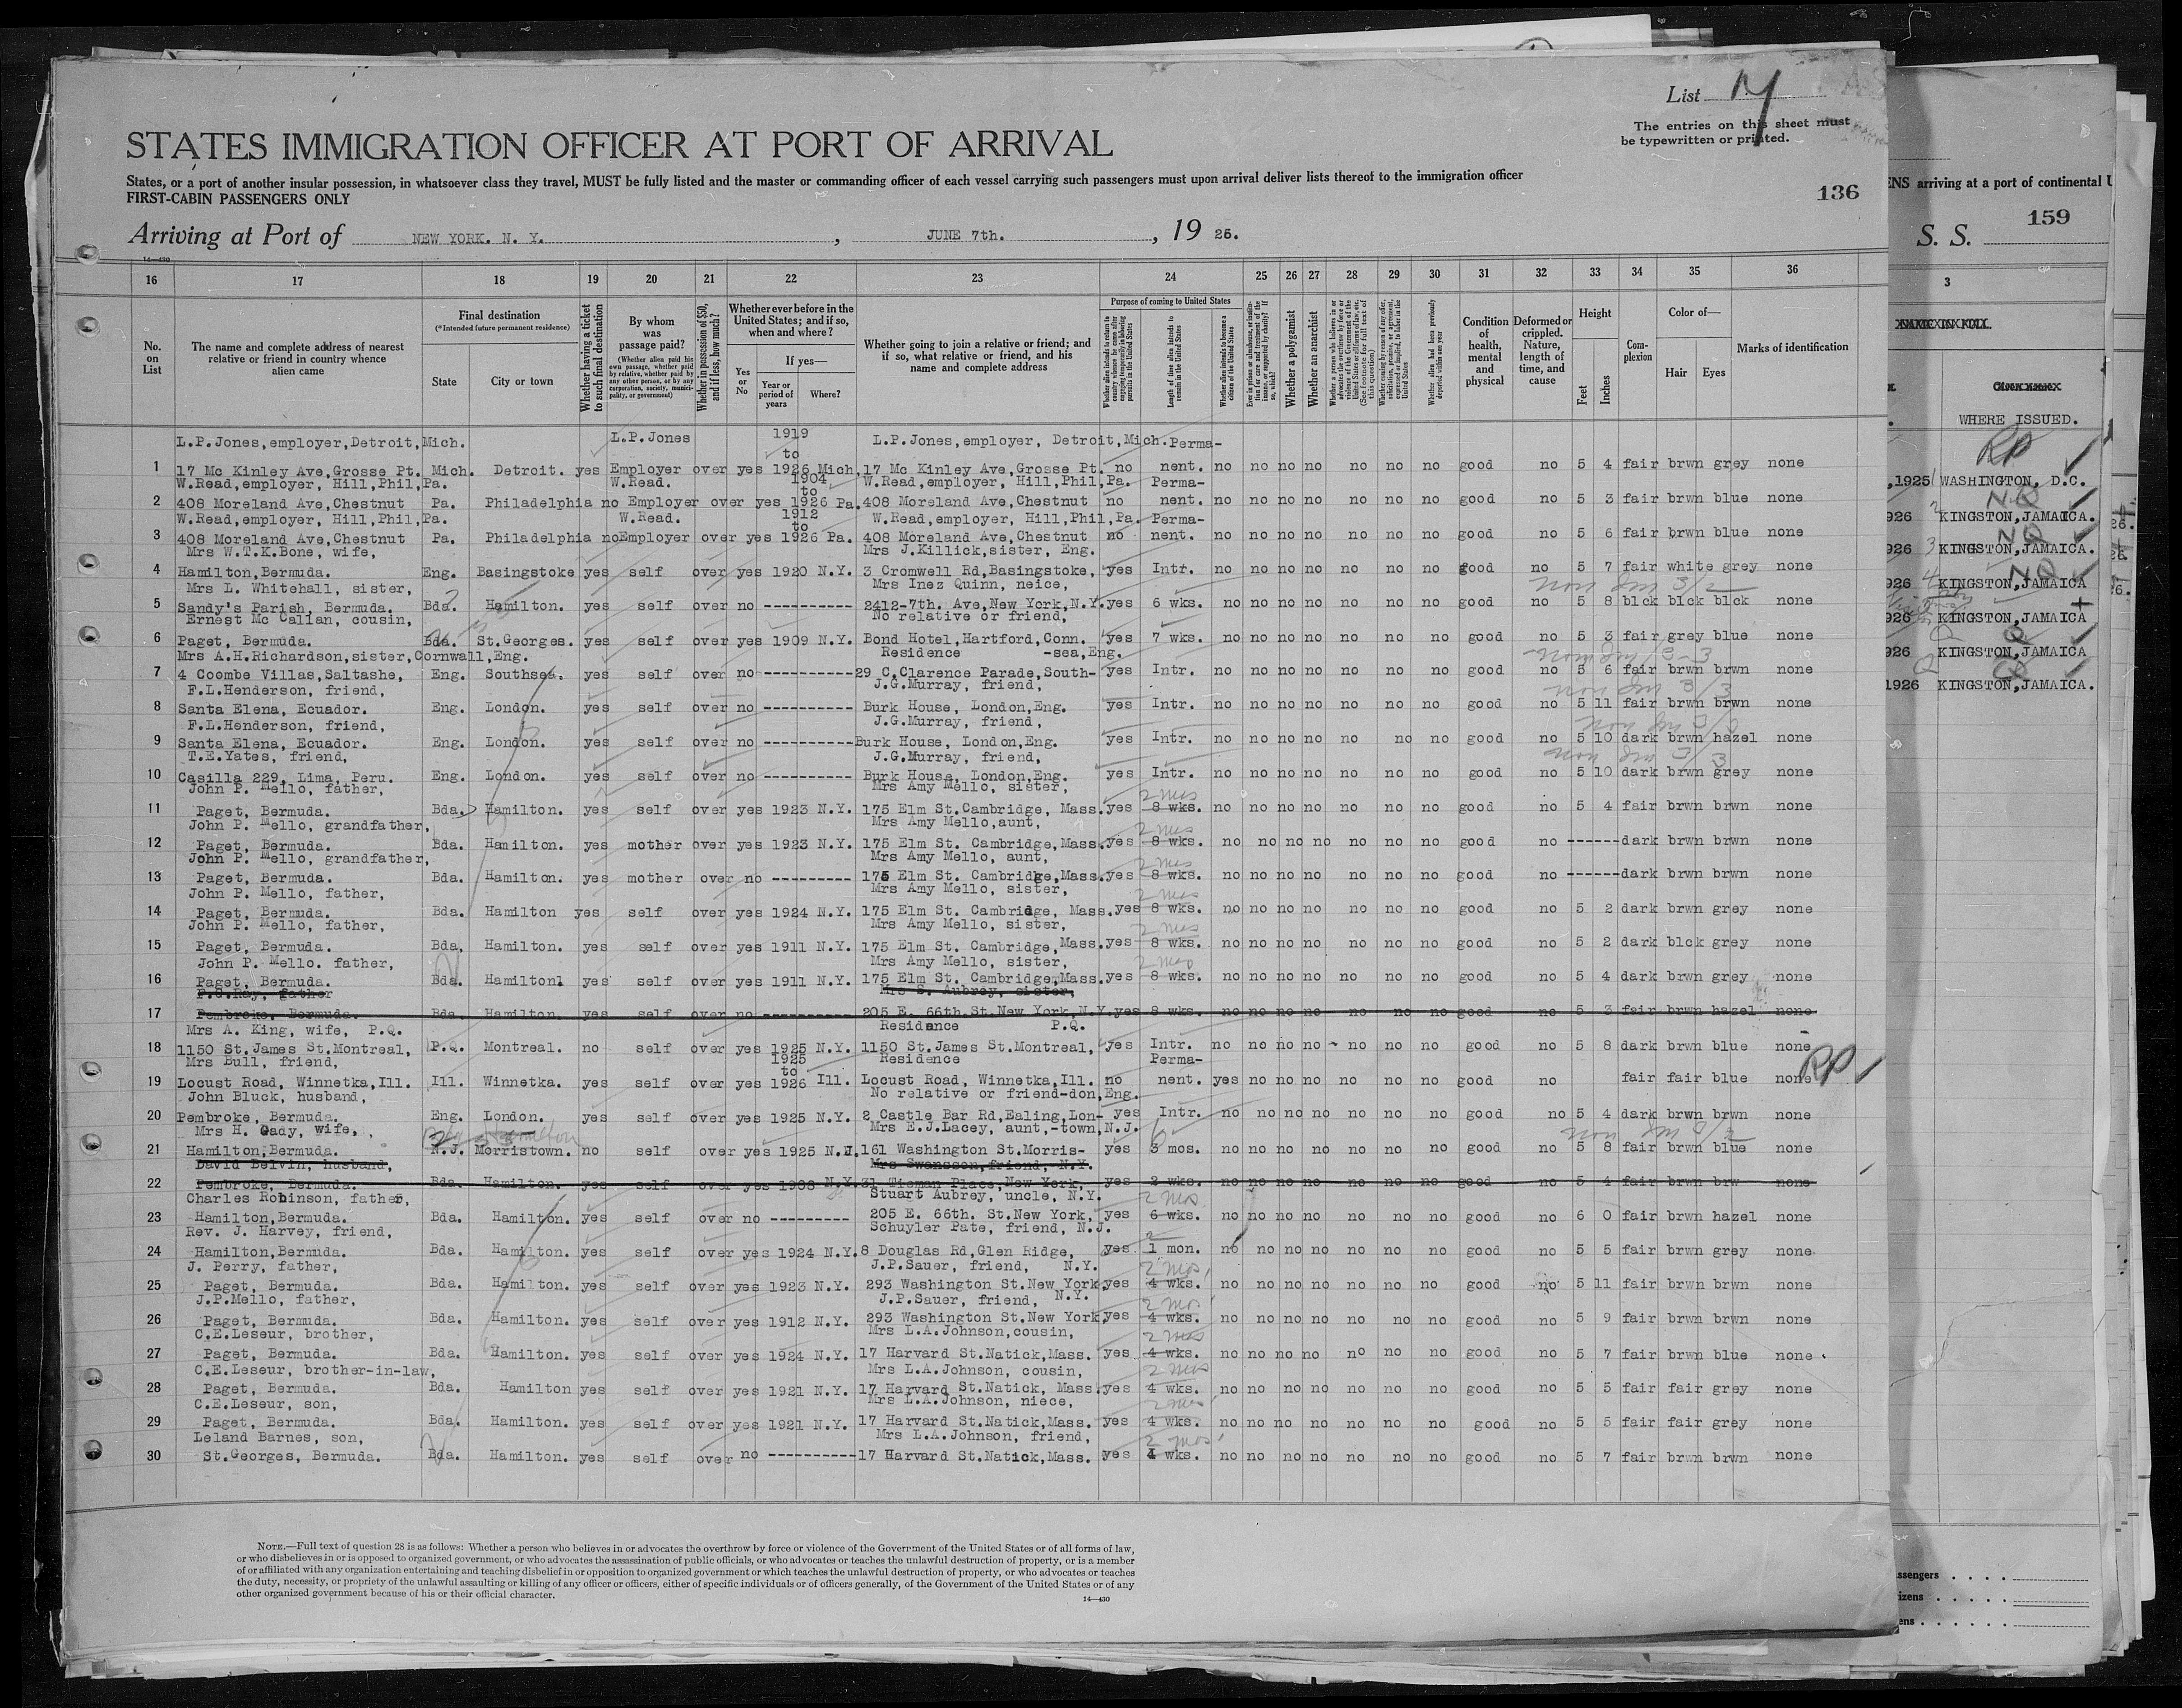 List
The entries on this sheet must
be typewritten or printed.
STATES IMMIGRATION OFFICER AT PORT OF ARRIVAL
States, or a port of another insular possession, in whatsoever class they travel, MUST be fully listed and the master or commanding officer of each vessel carrying such passengers must upon arrival deliver lists thereof to the immigration officer
FIRST-CABIN PASSENGERS ONLY
136
Arriving at Port of NEW YORK. N. Y. , JUNE 7th. , 19 26.
14—430
16 17 18 19 20 21 22 23 24 25 26 27 28 29 30 31 32 33 34 35 36
No. on List
The name and complete address of nearest relative or friend in country whence alien came
Final destination
(*Intended future permanent residence)
State
City or town
Whether having a ticket to such final destination
By whom was passage paid?
(Whether alien paid his own passage, whether paid by relative, whether paid by any other person, or by any corporation, society, municipality, or government)
Whether in possession of $50, and if less, how much?
Whether ever before in the United States; and if so, when and where?
Yes or No
If yes—
Year or period of years
Where?
Whether going to join a relative or friend; and if so, what relative or friend, and his name and complete address
Purpose of coming to United States
Length of time alien intends to remain in the United States
Whether alien intends to become a citizen of the United States
Whether a polygamist
Whether an anarchist
Condition of health, mental and physical
Deformed or crippled. Nature, length of time, and cause
Height
Feet
Inches
Complexion
Color of—
Hair
Eyes
Marks of identification
L.P.Jones,employer,Detroit,Mich. L.P.Jones 1919 to L.P.Jones,employer, Detroit,Mich. Perma-
1 17 Mc Kinley Ave,Grosse Pt. Mich. Detroit. yes Employer over yes 1926 Mich, 17 Mc Kinley Ave,Grosse Pt. no nent. no no no no no no no good no 5 4 fair brwn grey none
W.Read,employer, Hill,Phil,Pa. W.Read. 1904 to W.Read,employer, Hill,Phil,Pa. Perma-
2 408 Moreland Ave,Chestnut Pa. Philadelphia no Employer over yes 1926 Pa. 408 Moreland Ave,Chestnut no nent. no no no no no no no good no 5 3 fair brwn blue none
W.Read,employer, Hill,Phil,Pa. W.Read. 1912 to W.Read,employer, Hill,Phil,Pa. Perma-
3 408 Moreland Ave,Chestnut Pa. Philadelphia noEmployer over yes 1926 Pa. 408 Moreland Ave,Chestnut no nent. no no no no no no no good no 5 6 fair brwn blue none
Mrs W.T.K.Bone, wife, Mrs J.Killick,sister, Eng.
4 Hamilton,Bermuda. Eng. Basingstoke yes self over yes 1920 N.Y. 3 Cromwell Rd,Basingstoke, yes Intr. no no no no no no no good no 5 7 fair white grey none
Mrs L. Whitehall, sister, Mrs Inez Quinn, neice,
5 Sandy's Parish, Bermuda. Bda. Hamilton. yes self over no ---------- 2412-7th. Ave,New York,N.Y. yes 6 wks. no no no no no no no good no 5 8 blck blck blck none
Ernest Mc Callan, cousin, No relative or friend,
6 Paget, Bermuda. Bda. St.Georges. yes self over yes 1909 N.Y. Bond Hotel,Hartford,Conn. yes 7 wks. no no no no no no no good no 5 3 fair grey blue none
Mrs A.H.Richardson,sister,Cornwall,Eng. Residence -sea,Eng.
7 4 Coombe Villas,Saltashe, Eng. Southsea. yes self over no ---------- 29 C.Clarence Parade,South- yes Intr. no no no no no no no good no 5 6 fair brwn brwn none
F.L.Henderson, friend, J.G.Murray, friend,
8 Santa Elena, Ecuador. Eng. London. yes self over no ---------- Burk House, London,Eng. yes Intr. no no no no no no no good no 5 11 fair brwn brwn none
F.L.Henderson, friend, J.G.Murray, friend,
9 Santa Elena, Ecuador. Eng. London. yes self over no ---------- Burk House, London,Eng. yes Intr. no no no no no no no good no 5 10 dark brwn hazel none
T.E.Yates, friend, J.G.Murray, friend,
10 Casilla 229, Lima, Peru. Eng. London. yes self over no ---------- Burk House, London,Eng. yes Intr. no no no no no no no good no 5 10 dark brwn grey none
John P. Mello, father, Mrs Amy Mello, sister, 2 mos
11 Paget, Bermuda. Bda. Hamilton. yes self over yes 1923 N.Y. 175 Elm St.Cambridge, Mass. yes 8 wks. no no no no no no no good no 5 4 fair brwn brwn none
John P. Mello, grandfather, Mrs Amy Mello,aunt, 2 mos
12 Paget, Bermuda. Bda. Hamilton. yes mother over yes 1923 N.Y. 175 Elm St. Cambridge,Mass. yes 8 wks. no no no no no no no good no ------ dark brwn brwn none
John P. Mello, grandfather, Mrs Amy Mello, aunt, 2 mos
13 Paget, Bermuda. Bda. Hamilton. yes mother over no --------- 175 Elm St. Cambridge,Mass. yes 8 wks. no no no no no no no good no ------ dark brwn brwn none
John P. Mello, father, Mrs Amy Mello, sister, 2 mos
14 Paget, Bermuda. Bda. Hamilton yes self over yes 1924 N.Y. 175 Elm St. Cambridge, Mass. yes 8 wks. no no no no no no no good no 5 2 dark brwn grey none
John P. Mello, father, Mrs Amy Mello, sister, 2 mos
15 Paget, Bermuda. Bda, Hamilton. yes self over yes 1911 N.Y. 175 Elm St. Cambridge,Mass. yes 8 wks. no no no no no no no good no 5 2 dark blck grey none
John P. Mello. father, Mrs Amy Mello, sister, 2 mos
16 Paget, Bermuda. Bda. Hamilton. yes self over yes 1911 N.Y. 175 Elm St. Cambridge,Mass. yes 8 wks. no no no no no no no good no 5 4 dark brwn grey none
P.G.Ray, father Mrs S. Aubrey, sister,
17 Pembroke, Bermuda. Bda. Hamilton. yes self over no ---------- 205 E. 66th.St.New York,N.Y. yes 8 wks. no no no no no no no good no 5 3 fair brwn hazel none
Mrs A. King, wife, P.Q. Residence P.Q.
18 1150 St.James St.Montreal, P.Q. Montreal. no self over yes 1925 N.Y. 1150 St.James St.Montreal, yes Intr. no no no no no no no good no 5 8 dark brwn blue none
Mrs Bull, friend, 1925 to Residence Perma-
19 Locust Road, Winnetka,Ill. Ill. Winnetka. yes self over yes 1926 Ill. Locust Road, Winnetka,Ill. no nent. yes no no no no no no good no fair fair blue none RP
John Bluck, husband, No relative or friend-don,Eng.
20 Pembroke, Bermuda. Eng. London. yes self over yes 1925 N.Y. 2 Castle Bar Rd,Ealing,Lon- yes Intr. no no no no no no no good no 5 4 dark brwn brwn none
Mrs H. Gady, wife, Mrs E.J.Lacey, aunt,-town,N.J.
21 Hamilton,Bermuda. N.J. Morristown. no self over yes 1925 N.J. 161 Washington St.Morris- yes 3 mos. no no no no no no no good no 5 8 fair brwn blue none
David Belvin, husband, Mrs Swansson,friend, N.Y.
22 Pembroke, Bermuda. Bda. Hamilton. yes self over yes 1908 N.Y. 31 Tieman Place,New York, yes 2 wks. no no no no no no no good no 5 4 fair brwn brw none
Charles Robinson, father, Stuart Aubrey, uncle, N.Y. 2 mos
23 Hamilton,Bermuda. Bda. Hamilton. yes self over no ---------- 205 E. 66th. St.New York, yes 6 wks. no no no no no no no good no 6 0 fair brwn hazel none
Rev. J. Harvey, friend, Schuyler Pate, friend, N.J. 2
24 Hamilton,Bermuda. Bda. Hamilton. yes self over yes 1924 N.Y. 8 Douglas Rd,Glen Ridge, yes 1 mon. no no no no no no no good no 5 5 fair brwn grey none
J. Perry, father, J.P.Sauer, friend, N.Y. 2 mos
25 Paget, Bermuda. Bda. Hamilton. yes self over yes 1923 N.Y. 293 Washington St.New York, yes 4 wks. no no no no no no no good no 5 11 fair brwn brwn none
J.P.Mello, father, J.P.Sauer, friend, N.Y. 2 mos
26 Paget, Bermuda. Bda. Hamilton. yes self over yes 1912 N.Y. 293 Washington St.New York, yes 4 wks. no no no no no no no good no 5 9 fair brwn brwn none
C.E.Leseur, brother, Mrs L.A.Johnson,cousin, 2 mos
27 Paget, Bermuda. Bda. Hamilton. yes self over yes 1924 N.Y. 17 Harvard St.Natick,Mass. yes 4 wks. no no no no no no no good no 5 7 fair brwn blue none
C.E.Leseur, brother-in-law, Mrs L.A.Johnson, cousin, 2 mos
28 Paget, Bermuda. Bda. Hamilton yes self over yes 1921 N.Y. 17 Harvard St.Natick, Mass. yes 4 wks. no no no no no no no good no 5 5 fair fair grey none
C.E.Leseur, son, Mrs L.A.Johnson, niece, 2 mos
29 Paget, Bermuda. Bda. Hamilton. yes self over yes 1921 N.Y. 17 Harvard St.Natick,Mass. yes 4 wks. no no no no no no no good no 5 5 fair fair grey none
Leland Barnes, son, Mrs L.A.Johnson, friend, 2 mos
30 St.Georges, Bermuda. Bda. Hamilton. yes self over no ---------- 17 Harvard St.Natick,Mass. yes 4 wks. no no no no no no no good no 5 7 fair brwn brwn none
NOTE.—Full text of question 28 is as follows: Whether a person who believes in or advocates the overthrow by force or violence of the Government of the United States or of all forms of law,
or who disbelieves in or is opposed to organized government, or who advocates the assassination of public officials, or who advocates or teaches the unlawful destruction of property, or is a member
of or affiliated with any organization entertaining and teaching disbelief in or opposition to organized government or which teaches the unlawful destruction of property, or who advocates or teaches
the duty, necessity, or propriety of the unlawful assaulting or killing of any officer or officers, either of specific individuals or of officers generally, of the Government of the United States or of any
other organized government because of his or their official character.
14—430
ENS arriving at a port of continental U
159
S. S.
3
WHERE ISSUED.
RP
,1925 WASHINGTON, D.C.
926 KINGSTON,JAMAICA.
926 KINGSTON,JAMAICA.
926 KINGSTON,JAMAICA
926 KINGSTON,JAMAICA
926 KINGSTON,JAMAICA
1926 KINGSTON,JAMAICA.
ssengers
izens
ens